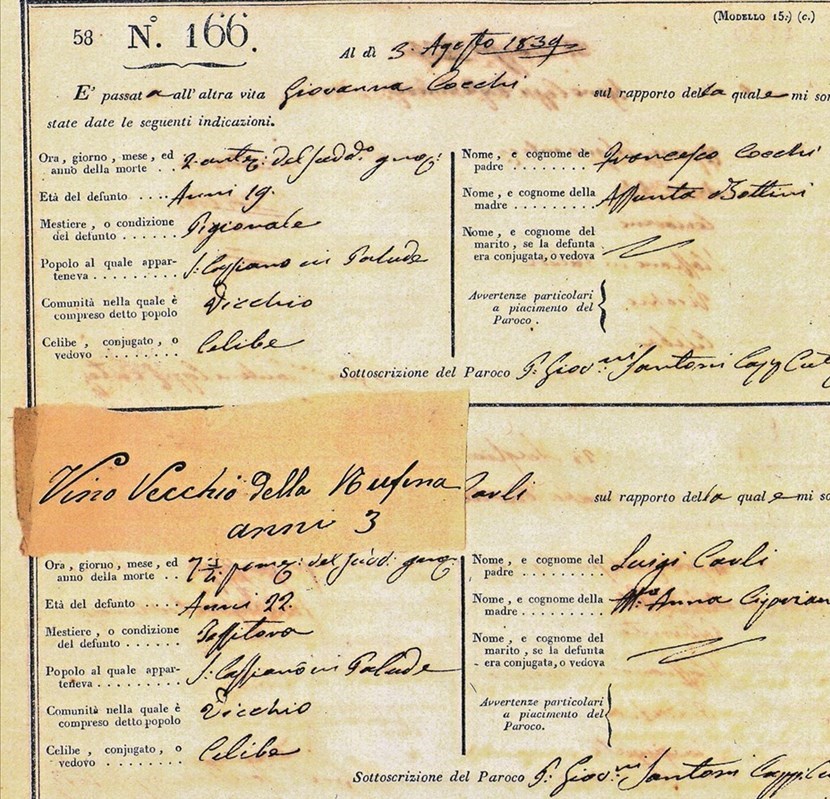 (Modello 15:) (c.)
58 N.º 166.
Al dì 3. Agosto 1839
E' passata all'altra vita Giovanna Cocchi sul rapporto della quale mi son
state date le seguenti indicazioni.
Ora, giorno, mese, ed
anno della morte . . 2. antez: del sudd.º gno:
Età del defunto . . . . Anni 19.
Mestiere, o condizione
del defunto . . . . . . Pigionale
Popolo al quale appar-
teneva . . . . . . . . . S. Cassiano in Padule
Comunità nella quale è
compreso detto popolo Vicchio
Celibe, conjugato, o
vedovo . . . . . . . . . Celibe
Nome, e cognome de
padre . . . . . . . . . Francesco Cocchi
Nome, e cognome della
madre . . . . . . . . . Assunta Bottini
Nome, e cognome del
marito, se la defunta
era conjugata, o vedova
Avvertenze particolari
a piacimento del
Paroco.
Sottoscrizione del Paroco P: Giov.ni Santoni Capp Cu
Vino Vecchio della Rufina
anni 3
Carli sul rapporto della quale mi so
Ora, giorno, mese, ed
anno della morte . . 7 pomez: del sudd: gno:
Età del defunto . . . . Anni 22.
Mestiere, o condizione
del defunto . . . . . . Tessitora
Popolo al quale appar-
teneva . . . . . . . . . S. Cassiano in Padule
Comunità nella quale è
compreso detto popolo Vicchio
Celibe, conjugato, o
vedovo . . . . . . . . . Celibe
Nome, e cognome del
padre . . . . . . . . . Luigi Carli
Nome, e cognome della
madre . . . . . . . . . M.a Anna Ciprian
Nome, e cognome del
marito, se la defunta
era conjugata, o vedova
Avvertenze particolari
a piacimento del
Paroco.
Sottoscrizione del Paroco P: Giov.ni Santoni Capp. Cu